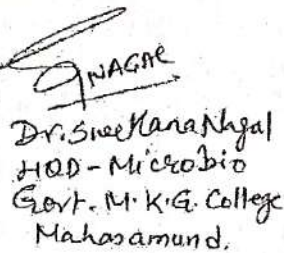 NAGAR
Dr. Swe
HOD - Microbio
Govt. M.K.G. College
Mahasamund.